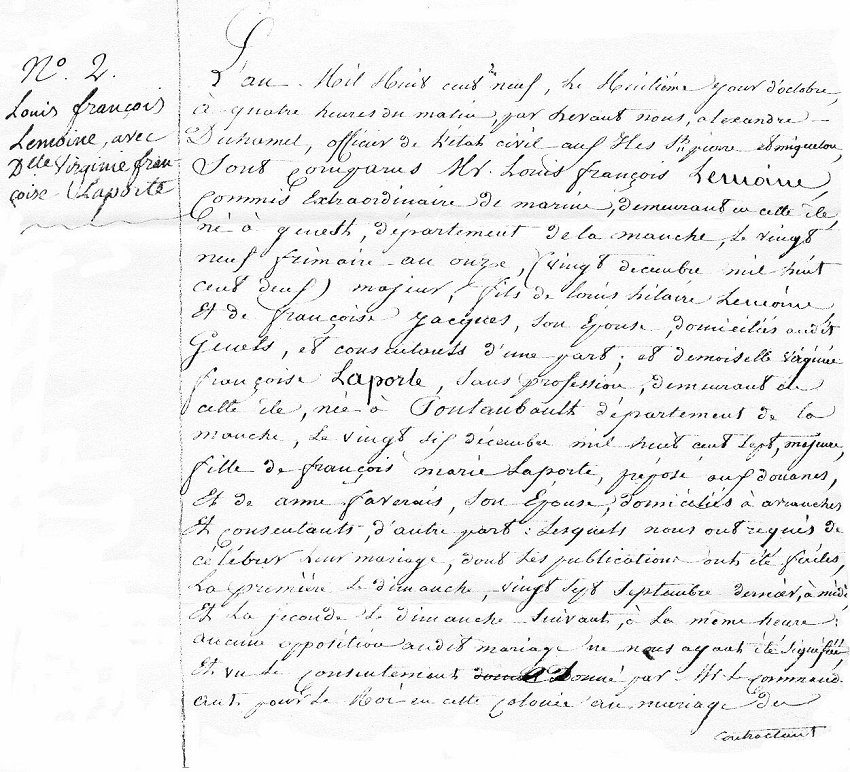 No. 2.
Louis françois
Lemoine, avec
Dlle Virginie fran
çoise Laporte
L'an Mil Huit cent neuf, le Huitième jour d'octobre,
à quatre heures du matin par devant nous, alexandre
Duhamel, officier de l'état civil aux Iles St pierre et miquelon,
Sont comparus Mr. Louis françois Lemoine,
commis Extraordinaire de marine, demeurant en cette île,
né à genest, département de la manche, le vingt
neuf frimaire an onze, (vingt décembre mil huit
cent deux) majeur, fils de louis hilaire Lemoine
Et de françoise jacques, son Epouse, domiciliés audit
Genets, et consentants d'une part; et demoiselle virginie
françoise Laporte, sans profession, demeurant en
cette île, née à Pontaubault département de la
manche, le vingt six décembre mil huit cent sept, majeure,
fille de françois marie Laporte, préposé aux douanes,
Et de anne faverais, son Epouse, domiciliés à avranches
Et consentants, d'autre part: Lesquels nous ont requis de
célébrer leur mariage, dont les publications ont été faites,
La première le dimanche, vingt sept septembre dernier, à midi,
Et la seconde le dimanche suivant, à la même heure:
aucune opposition audit mariage ne nous ayant été signifiée,
Et vu le consentement donné par Mr le command
ant pour le Roi en cette colonie au mariage du
contractant